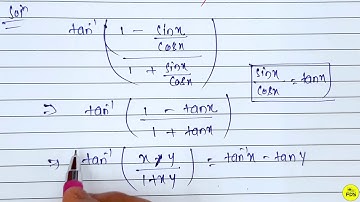 Soln
tan⁻¹ ( (1 - sinx/cosx) / (1 + sinx/cosx) )
sinx/cosx = tanx
=> tan⁻¹ ( (1 - tanx) / (1 + tanx) )
=> tan⁻¹ ( (x - y) / (1 + xy) ) = tan⁻¹x - tan y
PDS